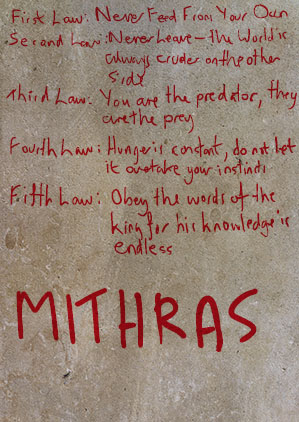 First Law: Never Feed From Your Own
Second Law: Never Leave – the World is
always cruder on the other
side
Third Law: You are the predator, they
are the prey
Fourth Law: Hunger is constant, do not let
it overtake your instincts
Fifth Law: Obey the words of the
king for his knowledge is
endless
MITHRAS